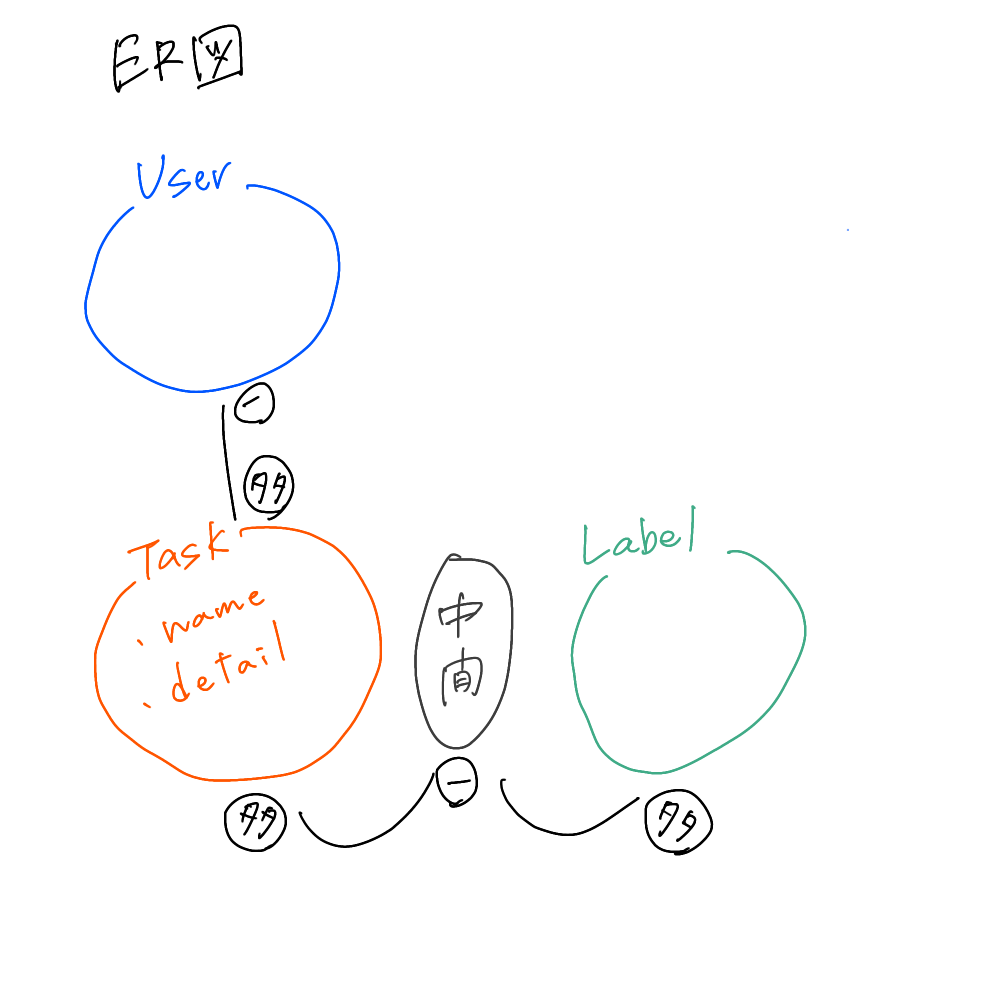 ER図
User
一
多
Task
、name
、detail
中間
Label
一
多
多